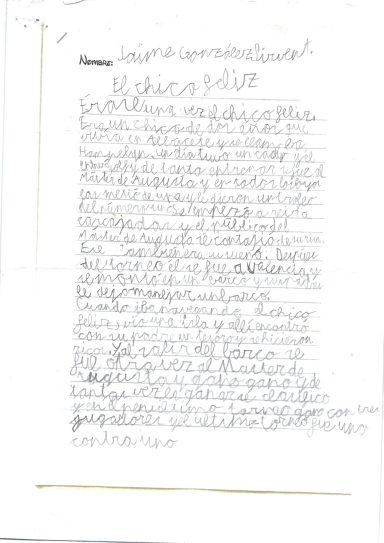 NOMBRE: Jaime González Sirvent.
El chico feliz
Érase una vez el chico feliz.
Era un chico de dos años que
vivía en Albacete y se llamaba
un día tuvo un
de tanto entrenar se fue al
Máster de Augusta y en todos los hoyos
las metió de una y le dieron un trofeo
del número uno. Se empezó a reír a
carcajadas y el público del
Máster de Augusta se contagió de su risa
Ese también era su sueño. Después
del torneo él se fue a Valencia y
se montó en un barco y
le dejo manejar un barco.
Cuando iba navegando el chico
feliz vio una isla y allí encontró
con su padre un tesoro y se hicieron
ricos. Y al salir del barco se
fue otra vez al Master de
Augusta y gano gano y de
tantas veces ganar se clasifico
y en el penúltimo torneo gano con tres
jugadores y el ultimo torneo fue uno
contra uno